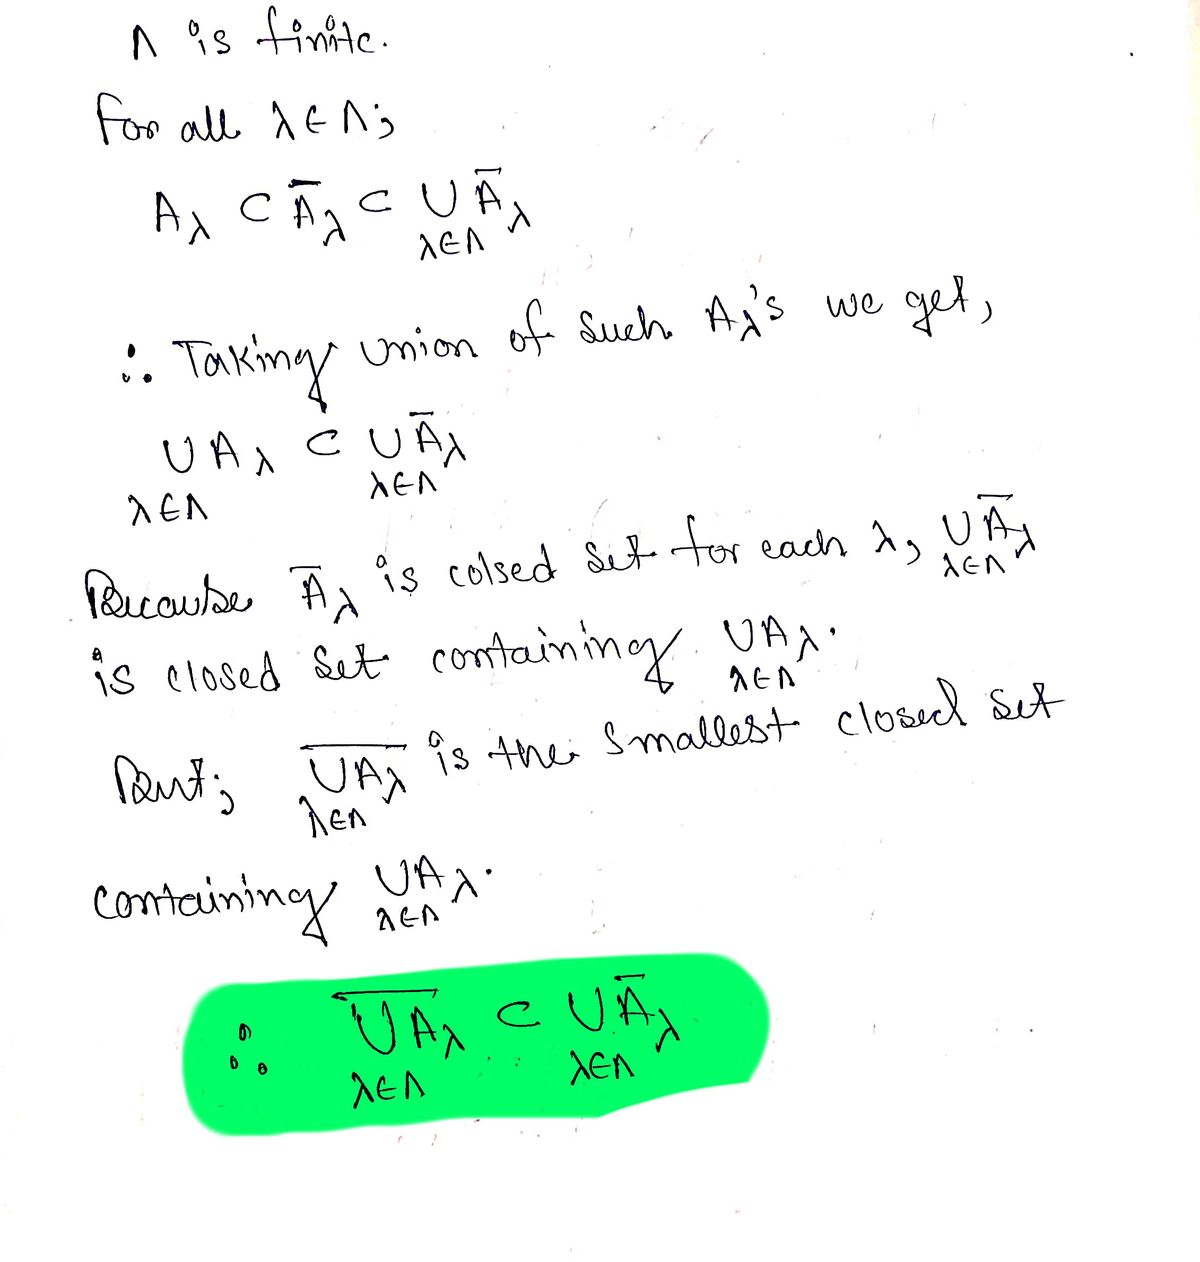 Λ is finite.
For all λ ∈ Λ;
A_λ ⊂ Ā_λ ⊂ ∪ Ā_λ
λ∈Λ
∴ Taking union of such A_λ's we get,
∪ A_λ ⊂ ∪ Ā_λ
λ∈Λ λ∈Λ
Because Ā_λ is colsed set for each λ, ∪ Ā_λ
λ∈Λ
is closed set containing ∪ A_λ.
λ∈Λ
But; \overline{∪ A_λ} is the smallest closed set
λ∈Λ
containing ∪ A_λ.
λ∈Λ
∴ \overline{∪ A_λ} ⊂ ∪ Ā_λ
λ∈Λ λ∈Λ